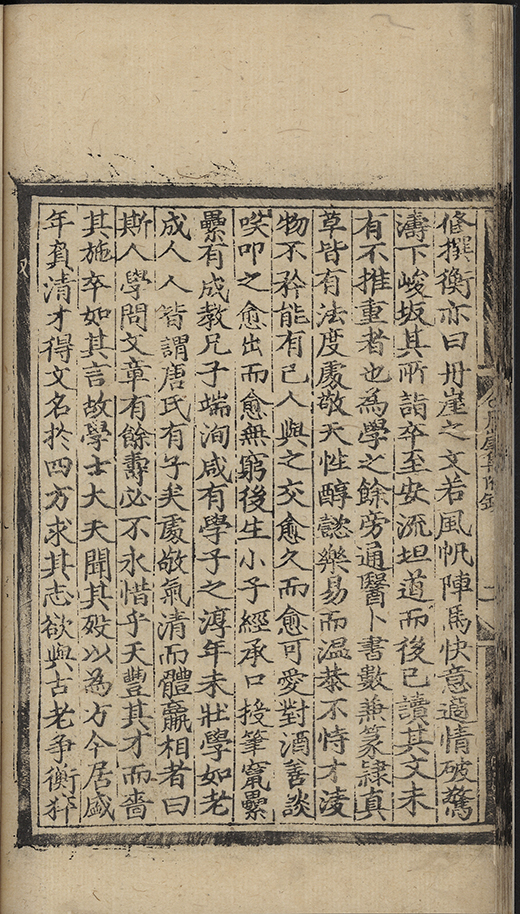 修撰衡亦曰丹崖之文若風帆陣馬快意適情破驚
濤下峻坂其所詣卒至安流坦道而後已讀其文未
有不推重者也為學之餘旁通醫卜書數兼篆隸真
草皆有法度處敬天性醇慤樂易而温恭不恃才淩
物不矜能有已人與之交愈久而愈可愛對酒善談
唉叩之愈出而愈無窮後生小子經承口授筆竄纍
纍有成教兄子端洵咸有學子之淳年未壯學如老
成人人皆謂唐氏有子矣處敬氣清而體羸相者曰
斯人學問文章有餘壽必不永惜乎天豐其才而嗇
其施卒如其言故學士大夫聞其歿以為方今居盛
年負清才得文名扵四方求其志欲與古老爭衡猝